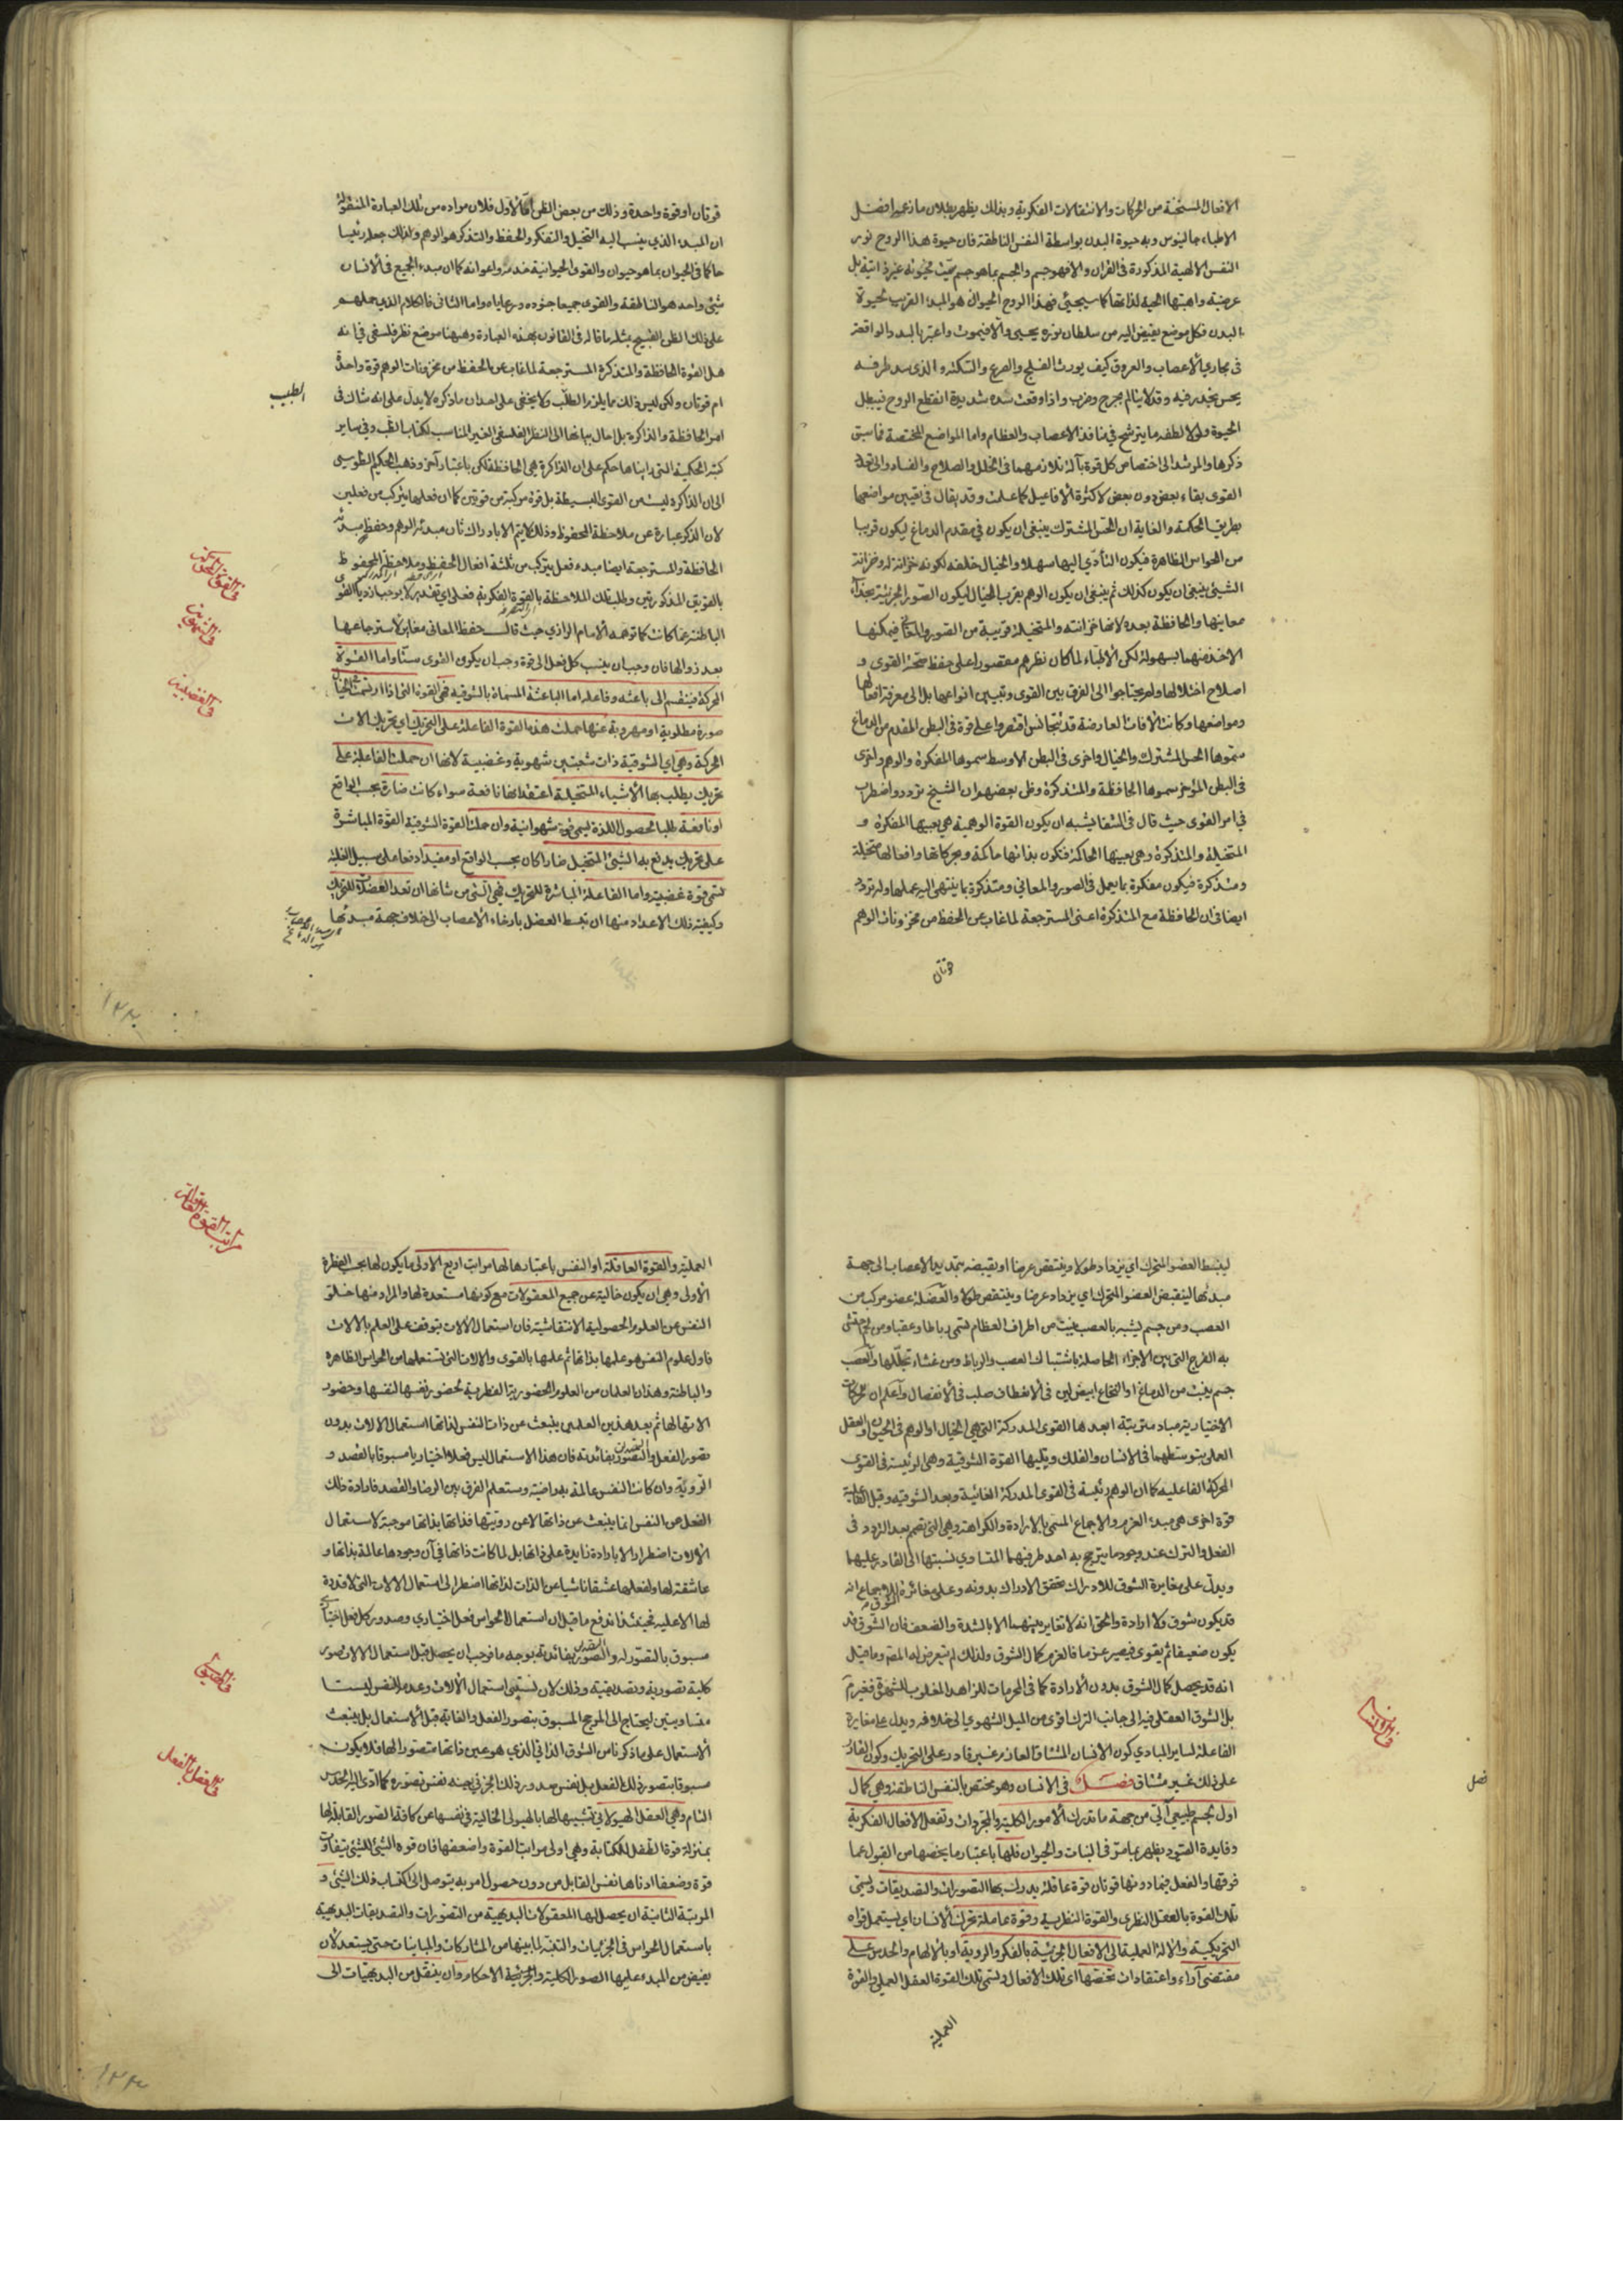 الافعال المستحثة من الحركات والانتقالات الفكرية وبذلك يظهر بطلان ما زعم افضل
الاطباء جالينوس وبه حيوة البدن بواسطة النفس الناطقة فان حيوة هذا الروح نور
النفس الالهية المذكورة فى القران والا فهو جسم والجسم بما هو جسم ميت حيوته غير ذاتية بل
عرضية واهبتها الحية لذاتها كما سيجيئ فهذا الروح الحيوانى هو المبدء القريب لحيوة
البدن فكل موضع يفيض اليه من سلطان نوره يحيى والا فيموت واعتبر بالسدد الواقعة
فى مجارى الاعصاب والعروق كيف يورث الفلج والصرع والسكتة والذى سد طرفه
يحس بخدر فيه وقد لا يتالم بجرح وضرب واذا وقعت سدة شديدة انقطع الروح فيبطل
الحيوة ولولا لطفه ما يترشح فى منافذ الاعصاب والعظام واما المواضع المختصة فما سبق
ذكرها والمرشد الى اختصاص كل قوة بآلة تلازمهما فى الخلل والصلاح والفساد والى تعدد
القوى بقاء بعض دون بعض لا كثرة الافاعيل كما علمت وقد يقال فى تعيين مواضعها
بطريق الحكمة والغاية ان الحس المشترك ينبغى ان يكون فى مقدم الدماغ ليكون قريبا
من الحواس الظاهرة فيكون التأدى اليها سهلا والخيال خلفه لكونه خزانة له وخزانة
الشيئ ينبغى ان يكون كذلك ثم ينبغى ان يكون الوهم بقرب الخيال ليكون الصور الجزئية بحذاء
معانيها والحافظة بعده لانها خزانته والمتخيلة قريبة من الصور والمعانى فيمكنها
الاخذ منهما بسهولة لكن الاطباء لما كان نظرهم مقصورا على حفظ صحة القوى و
اصلاح اختلالها ولم يحتاجوا الى الفرق بين القوى وتبيين انواعها بل الى معرفة افعالها
ومواضعها وكانت الآفات العارضة قد تتجانس اقتصروا على قوة فى البطن المقدم من الدماغ
سموها الحس المشترك والخيال واخرى فى البطن الاوسط سموها المفكرة والوهم واخرى
فى البطن المؤخر سموها الحافظة والمتذكرة وظن بعضهم ان الشيخ تردد واضطراب
فى امر القوى حيث قال فى الشفا يشبه ان يكون القوة الوهمية هى بعينها المفكرة و
المتخيلة والمتذكرة وهى بعينها الحاكمة فتكون بذاتها حاكمة وبحركاتها وافعالها متخيلة
ومتذكرة فيكون مفكرة بما يعمل فى الصور والمعانى ومتذكرة بما ينتهى اليه عملها وله تردد
ايضا فى ان الحافظة مع المتذكرة اعنى المسترجعة لما غاب عن الحفظ من مخزونات الوهم
قوتان
قوتان او قوة واحدة وذلك من بعض الظن اما الاول فلان مراده من تلك العبارة المنقولة
ان المبدء الذى ينسب اليه التخيل والتفكر والحفظ والتذكر هو الوهم ولذلك جعله رئيسا
حاكما فى الحيوان بما هو حيوان والقوى الحيوانية خدمه واعوانه كما ان مبدء الجميع فى الانسان
شيئ واحد هو الناطقة والقوى جميعا جنوده ورعاياه واما الثانى فالكلام الذى حملهم
على ذلك الظن القبيح بمثله ما قاله فى القانون بهذه العبارة وههنا موضع نظر فلسفى فى انه
هل القوة الحافظة والمتذكرة المسترجعة لما غاب عن الحفظ من مخزونات الوهم قوة واحدة
ام قوتان ولكن ليس ذلك مما يلزم الطبيب ولا يخفى على احد ان ما ذكره لا يدل على انه شاك فى
الطبيب
امر الحافظة والذاكرة بل احال بيانها الى النظر الفلسفى الغير المناسب لكتاب الطب وفى ساير
كتبه الحكمية التى رايناها حكم على ان الذاكرة هى الحافظة لكن باعتبار آخر وذهب الحكيم الطوسى
الى ان الذاكرة ليست من القوى البسيطة بل قوة مركبة من قوتين كما ان فعلها يتركب من فعلين
لان الذكر عبارة عن ملاحظة المحفوظ وذلك لا يتم الا بادراك ثان مبدئه الوهم وحفظ مبدئه
الحافظة والمسترجعة ايضا مبدء فعل يتركب من ثلثة افعال الحفظ وملاحظة المحفوظ
بالقوتين المذكورتين وطلب تلك الملاحظة بالقوة الفكرية فعلى اى تقدير لا يوجب ازدياد القوى
الباطنة عما كانت كما توهمه الامام الرازى حيث قال حفظ المعانى مغاير لاسترجاعها
بعد زوالها فان وجب ان ينسب كل فعل الى قوة وجب ان يكون القوى ستا واما القوة
المحركة فينقسم الى باعثة وفاعلة اما الباعثة المسماة بالشوقية فهى القوة التى اذا ارتسمت فى الخيال
صورة مطلوبة او مهروبة عنها حملت هذه القوة الفاعلة على التحريك اى تحريك الات
الحركة وهى اى الشوقية ذات شعبتين شهوية وغضبية لانها ان حملت الفاعلة على
تحريك يطلب بها الاشياء المتخيلة اعتقد انها نافعة سواء كانت ضارة بحسب الواقع
او نافعة طلبا لحصول اللذة يسمى قوة شهوانية وان حملت القوة الشوقية القوة المباشرة
على تحريك يدفع به الشيئ المتخيل ضارا كان بحسب الواقع او مفيدا دفعا على سبيل الغلبة
تسمى قوة غضبية واما الفاعلة المباشرة للتحريك فهى التى من شانها ان تعد العضلات للتحريك
وكيفية ذلك الاعداد منها ان تبسط العضل بارخاء الاعصاب الى خلاف جهة مبدئها
فى الشهوية
فى الغضبية
١٢٢
ليبسط العضو المتحرك اى يزداد طولا وينتقص عرضا او تقبضه بتمديد الاعصاب الى جهة
مبدئها لينقبض العضو المتحرك اى يزداد عرضا وينتقص طولا والعضلة عضو مركب من
العصب ومن جسم يشبه بالعصب ينبت من اطراف العظام تسمى رباطا وعقبا ومن لحم احتشى
به الفرج التى بين الاجزاء الحاصلة باشتباك العصب والرباط ومن غشاء تجللها والعصب
جسم ينبت من الدماغ او النخاع ابيض لين فى الانعطاف صلب فى الانفصال واعلم ان للحركات
الاختيارية مبادى مترتبة ابعدها القوى المدركة التى هى الخيال او الوهم فى الحيوان والعقل
العملى بتوسطهما فى الانسان والفلك ويتليها القوة الشوقية وهى الرئيسة فى القوى
المحركة الفاعلية كما ان الوهم رئيسة فى القوى المدركة الغائية وبعد الشوقية وقبل الفاعلة
قوة اخرى هى مبدء العزم والاجماع المسمى بالارادة والكراهة وهى التى تصمم بعد التردد فى
الفعل والترك عند وجود ما يترجح به احد طرفيهما المتساوى نسبتهما الى القادر عليهما
ويدل على مغايرة الشوق للادراك تحقق الادراك بدونه وعلى مغايرة الشوق للاجماع انه
قد يكون شوق ولا ارادة والحق انه لا تغاير بينهما الا بالشدة والضعف فان الشوق قد
يكون ضعيفا ثم يقوى فيصير عزما فالعزم كمال الشوق ولذلك لم يتعرض له المصنف وما قيل
انه قد يحصل كمال الشوق بدون الارادة كما فى المحرمات للزاهد المغلوب للشهوة فغير مسلم
بل الشوق العقلى فيه الى جانب الترك اقوى من الميل الشهوى الى خلافه ويدل على مغايرة
الفاعلة لساير المبادى كون الانسان المشتاق العازم غير قادر على التحريك وكون القادر
على ذلك غير مشتاق فصل فى الانسان وهو مختص بالنفس الناطقة وهى كمال
فصل
اول لجسم طبيعى آلى من جهة ما تدرك الامور الكلية والمجردات وتفعل الافعال الفكرية
وفايدة القيود يظهر مما مر فى النبات والحيوان فلها باعتبار ما يخصها من القبول عما
فوقها والفعل فيما دونها قوتان قوة عاقلة يدرك بها التصورات والتصديقات ويسمى
تلك القوة بالعقل النظرى والقوة النظرية وقوة عاملة تحرك الانسان اى يستعمل قواه
التحريكية والآلة العملية الى الافعال الجزئية بالفكر والروية او بالالهام والحدس على
مقتضى آراء واعتقادات تخصها اى تلك الافعال ويسمى تلك القوة العقل العملى والقوة
العملية
مراتب القوة العاقلة
العملية والقوة العاقلة او النفس باعتبارها لها مراتب اربع الاولى ما يكون لها بحسب الفطرة
الاولى وهى ان يكون خالية عن جميع المعقولات مع كونها مستعدة لها والمراد منها خلو
النفس عن العلوم الحصولية الانتقاشية فان استعمال الالات يتوقف على العلم بالالات
فاول علوم النفس هو علمها بذاتها ثم علمها بالقوى والالات التى تستعملها من الحواس الظاهرة
والباطنة وهذان العلمان من العلوم الحضورية الفطرية لحضور نفسها لنفسها وحضور
الاتها لها ثم بعد هذين العلمين ينبعث عن ذات النفس لذاتها استعمال الالات بدون
تصور الفعل والتصديق بفائدته فان هذا الاستعمال ليس فعلا اختياريا مسبوقا بالقصد و
الروية وان كانت النفس عالمة به راضية وستعلم الفرق بين الرضا والقصد فارادة ذلك
الفعل من النفس انما ينبعث عن ذاتها لا عن رويتها فذاتها بذاتها موجبة لاستعمال
الالات اضطرارا لا بارادة زايدة على ذاتها بل لما كانت ذاتها فى آن وجودها عالمة بذاتها و
عاشقة لها ولفعلها عشقا ناشيا عن الذات لذاتها اضطر الى استعمال الالات التى لا قدرة
لها الا عليه فحينئذ اندفع ما قيل ان استعمال الحواس فعل اختيارى وصدور كل فعل اختيارى
مسبوق بالتصور له والتصديق بفائدته بوجه ما فوجب ان يحصل قبل استعمال الالات صور
كلية تصورية وتصديقية وذلك لان نسبتى استعمال الالات وعدمه للنفس ليستا
متساويتين ليحتاج الى المرجح المسبوق بتصور الفعل والغاية قبل الاستعمال بل ينبعث
الاستعمال على ما ذكرنا من الشوق الذاتى الذى هو عين ذاتها متصورا لها فلا يكون
مسبوقا بتصور ذلك الفعل بل نفس صدور ذلك الجزئى بعينه نفس تصوره كما ادى اليه الحدس
التام وهى العقل الهيولانى تشبيها لها بالهيولى الخالية فى نفسها عن كافة الصور القابلة لها
بمنزلة قوة الطفل للكتابة وهى اولى مراتب القوة واضعفها فان قوة الشيئ للشيئ يتفاوت
قوة وضعفا ادناها نفس القابل من دون حصول امر به يتوصل الى اكتساب ذلك الشيئ و
المرتبة الثانية ان يحصل لها المعقولات البديهية من التصورات والتصديقات البديهية
باستعمال الحواس فى الجزئيات والتنبه لما بينها من المشاركات والمباينات حتى يستعد لان
يفيض من المبدء عليها الصور الكلية والجزئية الاحكام وان ينتقل من البديهيات الى
١٢٣